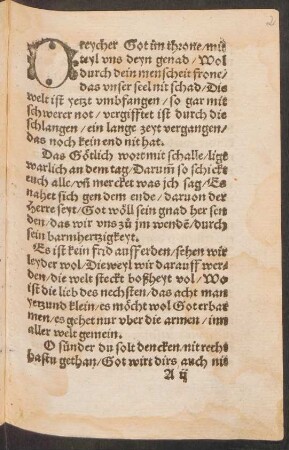 2
O reycher Got im throne/mit
teyl vns deyn genad/Wol
durch dein menscheit frone/
das vnser seel nit schad/Die
welt ist yetzt vmbfangen/so gar mit
schwerer not/vergifftet ist durch die
schlangen/ein lange zeyt vergangen/
das noch kein end nit hat.
Das Götlich wort mit schalle/ligt
warlich an dem tag/Darum̃ so schickt
euch alle/vñ mercket was ich sag/Es
nahet sich gen dem ende/daruon der
Herre seyt/Got wöll sein gnad her sen
den/das wir vns zů jm wendē/durch
sein barmhertzigkeyt.
Es ist kein frid auff erden/sehen wir
leyder wol/Dieweyl wir darauff wer-
den/die welt steckt boßheyt vol/Wo
ist die lieb des nechsten/das acht man
yetzund klein/es möcht wol Got erbar
men/es gehet nur vber die armen/inn
aller welt gemein.
O sünder du solt dencken/nit recht
hastu gethan/Got wirt dirs auch nit
A ij